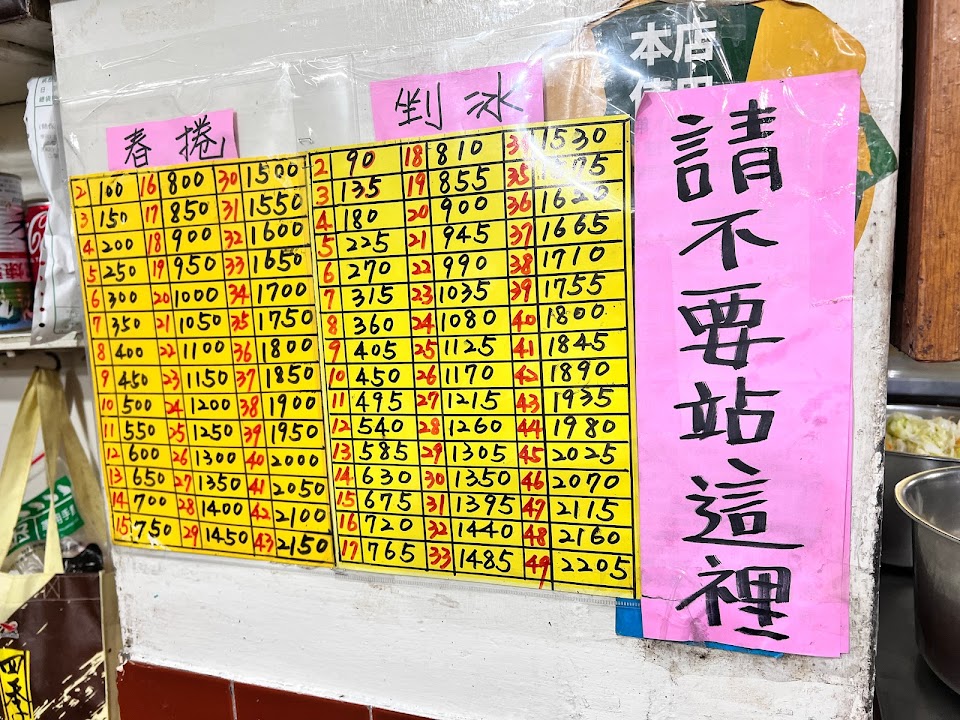 本店
春捲
2 100 16 800 30 1500
3 150 17 850 31 1550
4 200 18 900 32 1600
5 250 19 950 33 1650
6 300 20 1000 34 1700
7 350 21 1050 35 1750
8 400 22 1100 36 1800
9 450 23 1150 37 1850
10 500 24 1200 38 1900
11 550 25 1250 39 1950
12 600 26 1300 40 2000
13 650 27 1350 41 2050
14 700 28 1400 42 2100
15 750 29 1450 43 2150
剉冰
2 90 18 810 34 1530
3 135 19 855 35 1575
4 180 20 900 36 1620
5 225 21 945 37 1665
6 270 22 990 38 1710
7 315 23 1035 39 1755
8 360 24 1080 40 1800
9 405 25 1125 41 1845
10 450 26 1170 42 1890
11 495 27 1215 43 1935
12 540 28 1260 44 1980
13 585 29 1305 45 2025
14 630 30 1350 46 2070
15 675 31 1395 47 2115
16 720 32 1440 48 2160
17 765 33 1485 49 2205
請不要站這裡